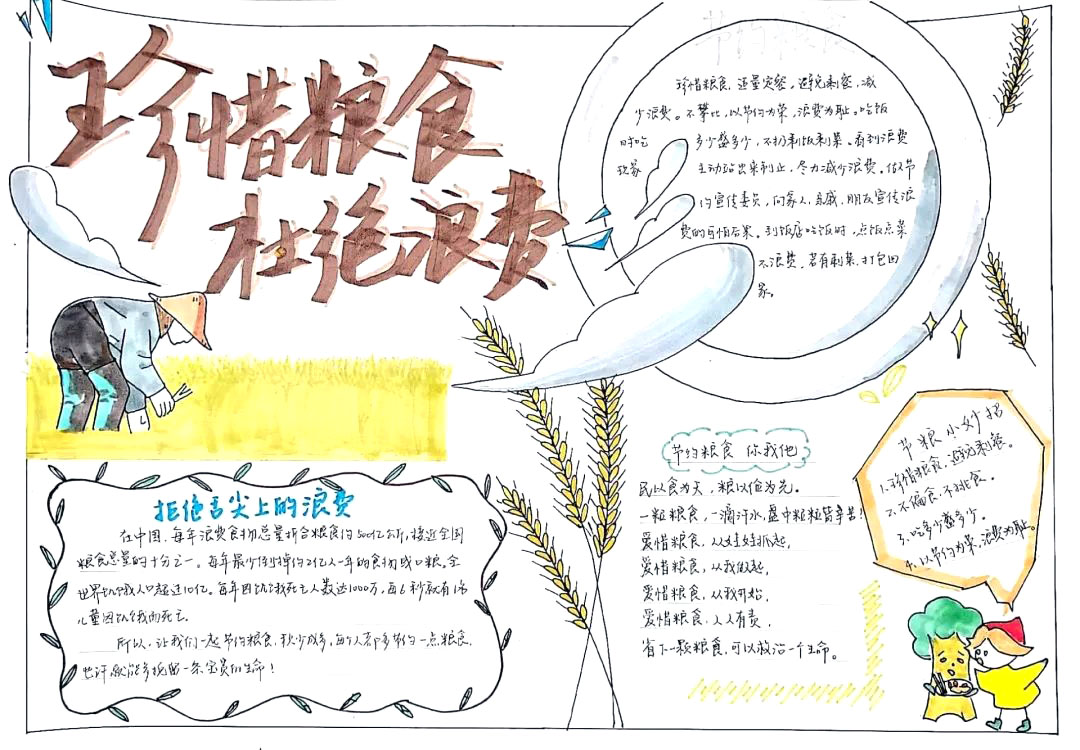 珍惜粮食
杜绝浪费
节约粮食
珍惜粮食，适量定餐，避免剩餐，减
少浪费。不攀比，以节约为荣，浪费为耻。吃饭
时吃 多少盛多少，不扔剩饭剩菜。看到浪费
现象 主动站出来制止，尽力减少浪费。做节
约宣传委员，向家人，亲戚，朋友宣传浪
费的可怕后果。到饭店吃饭时，点饭点菜
不浪费，若有剩菜，打包回
家。
拒绝舌尖上的浪费
在中国，每年浪费食物总量折合粮食约500亿公斤，接近全国
粮食总量的十分之一。每年最少倒掉约2亿人一年的食物或口粮。全
世界饥饿人口超过10亿。每年因饥饿死亡人数达1000万，每6秒就有1名
儿童因饥饿而死亡。
所以，让我们一起节约粮食，积少成多，每个人都多节约一点粮食，
也许就能多挽留一条宝贵的生命！
节约粮食 你我他
民以食为天，粮以俭为先。
一粒粮食，一滴汗水，盘中粒粒皆辛苦！
爱惜粮食，从娃娃抓起，
爱惜粮食，从我做起，
爱惜粮食，从我开始，
爱惜粮食，人人有责，
省下一颗粮食，可以救活一个生命。
节粮小妙招
1.珍惜粮食，避免剩餐。
2.不偏食，不挑食。
3.吃多少盛多少。
4.以节约为荣，浪费为耻。